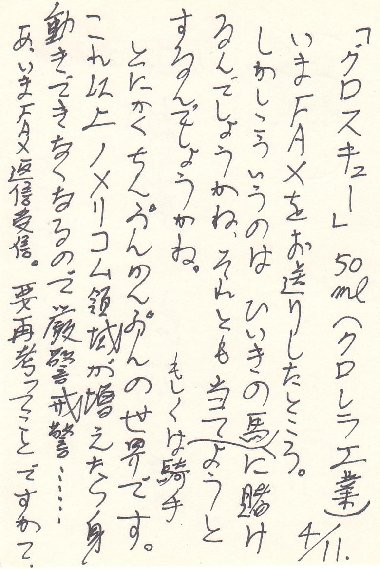 「グロスキュー」50ml(クロレラ工業)
4/11.
いまFAXをお送りしたところ。
しかしこういうのは ひいきの馬に賭け
るんでしょうかね、それとも当てようと
するんでしょうかね。
もしくは騎手
とにかくちんぷんかんぷんの世界です。
これ以上ノメリコム領域が増えたら身
動きできなくなるので厳警戒警……
あ、いまFAX返信受信。要再考ってことですかで、